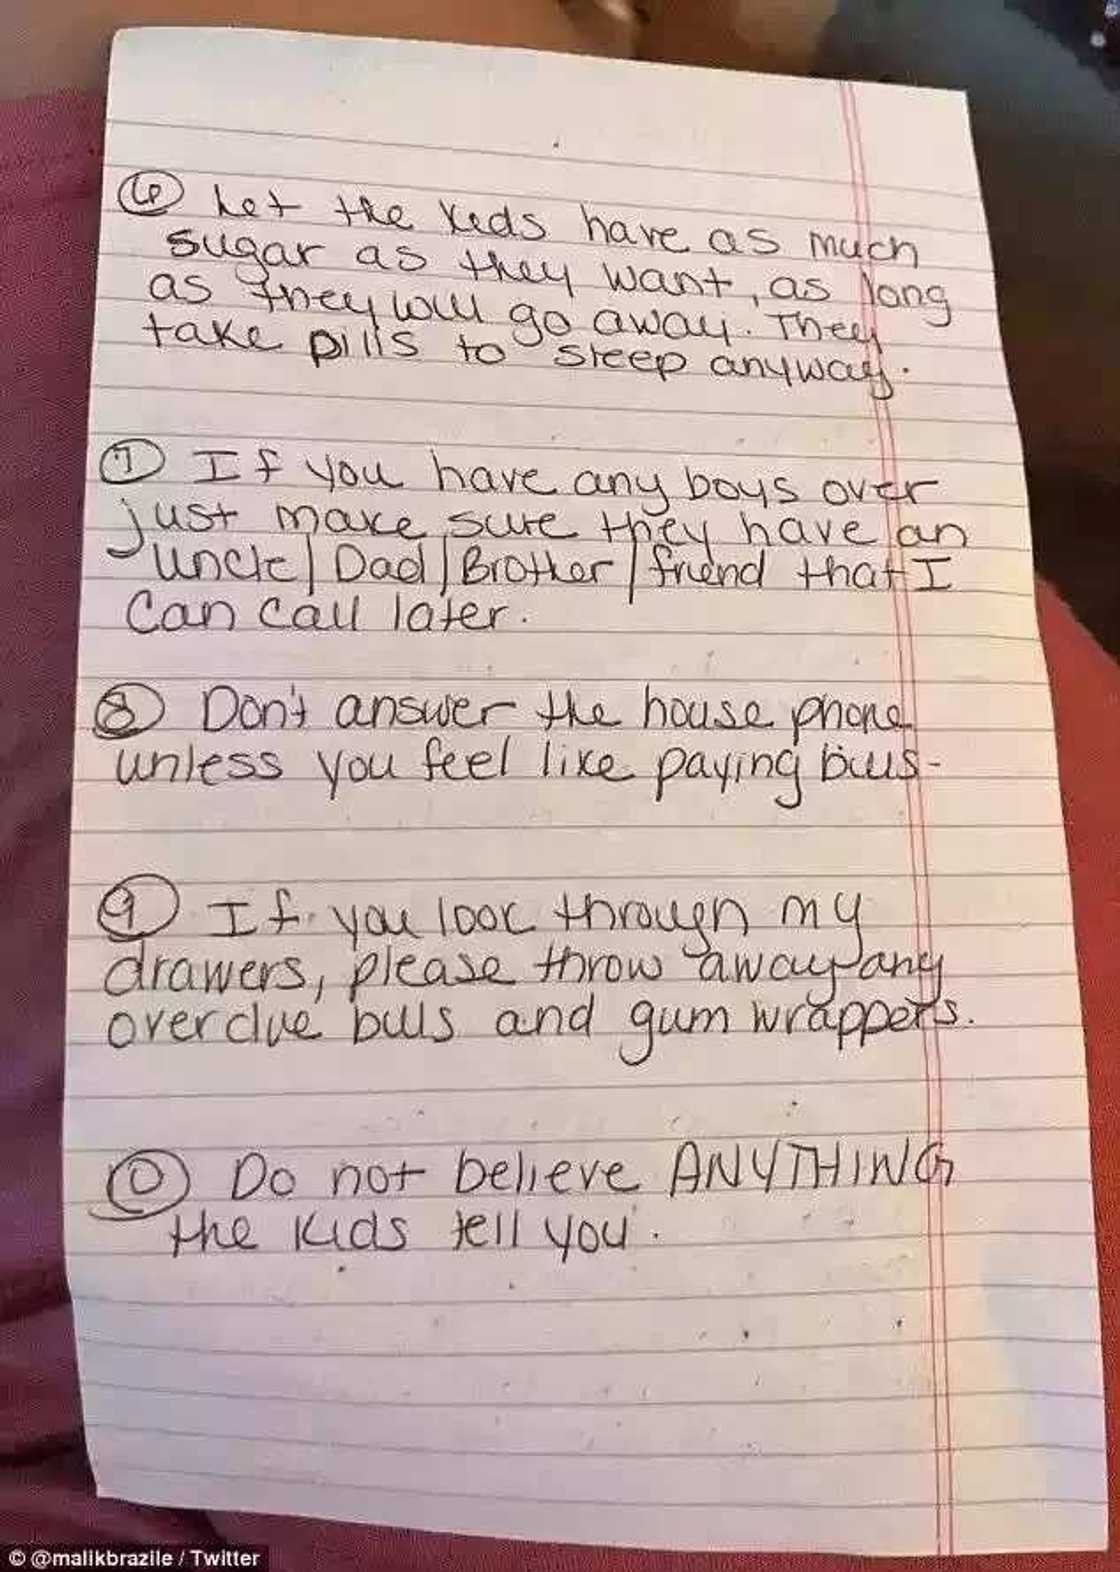 6 Let the kids have as much
sugar as they want, as long
as they will go away. They
take pills to sleep anyway.
7 If you have any boys over
just make sure they have an
uncle/Dad/Brother/friend that I
can call later.
8 Don't answer the house phone
unless you feel like paying bills-
9 If you look through my
drawers, please throw away any
overdue bills and gum wrappers.
0 Do not believe ANYTHING
the kids tell you.
© @malikbrazile / Twitter